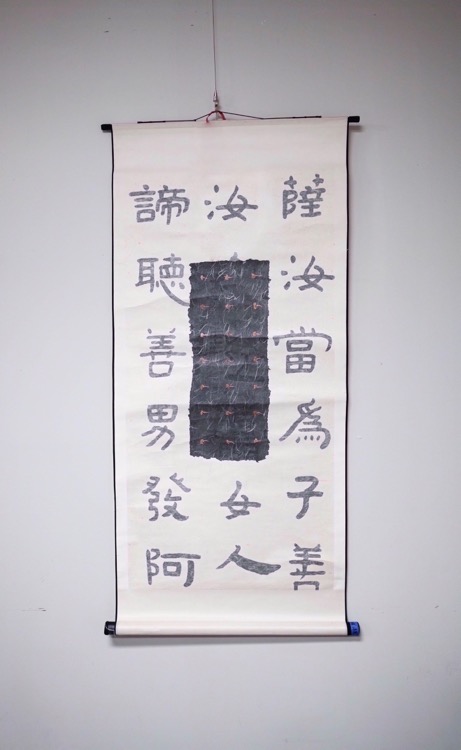 薩汝當爲子善
汝女人
諦聽善男發阿